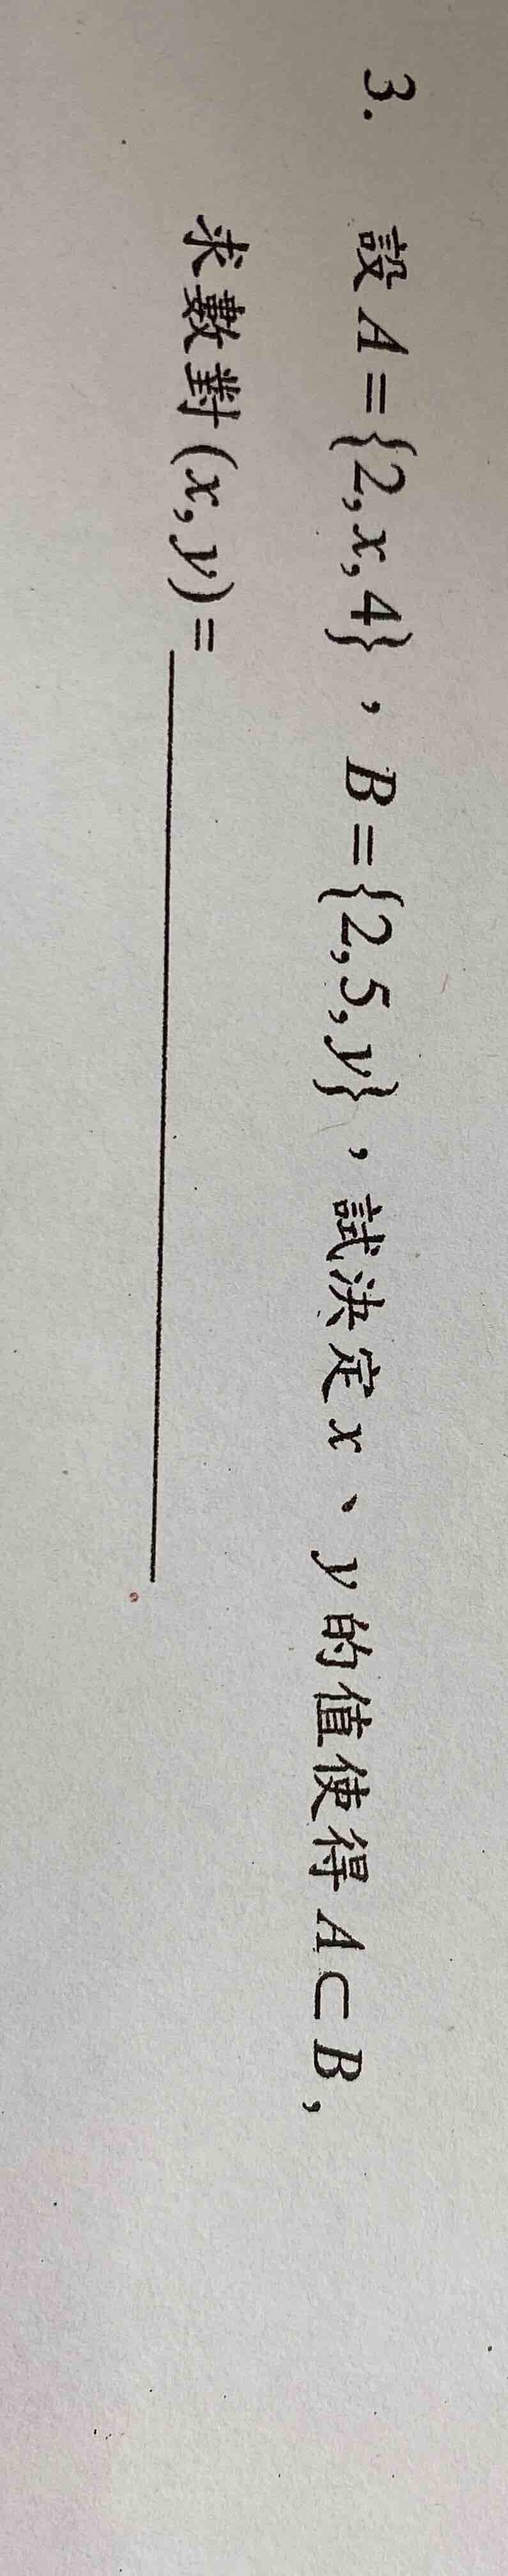 3. 設A={2,x,4}，B={2,5,y}，試決定x、y的值使得A⊂B,
求數對(x,y)=＿＿＿＿＿＿＿＿＿＿。